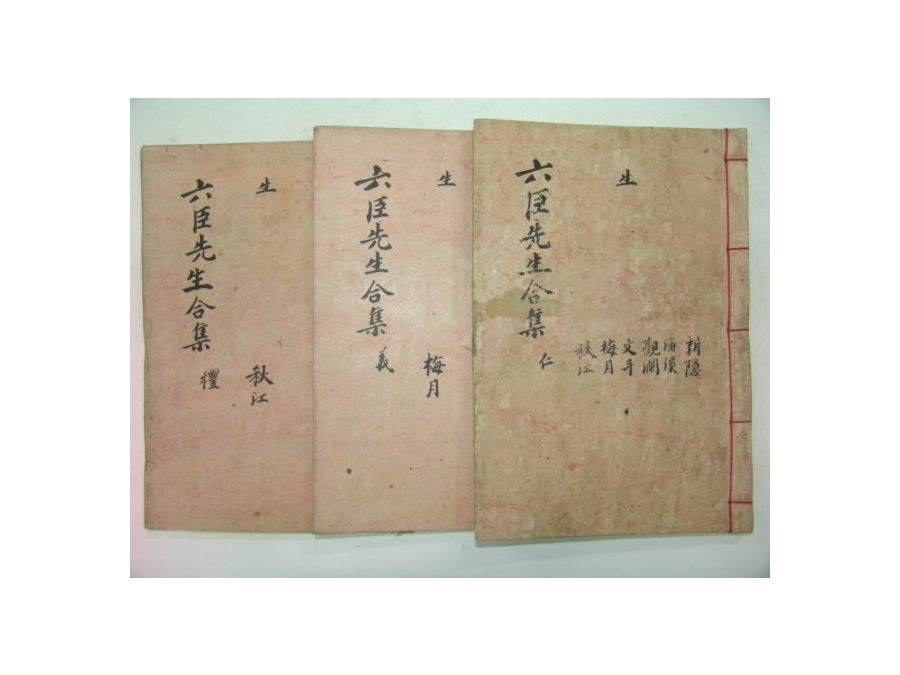 耕隱
漁溪
觀瀾
文斗
梅月
秋江
生
六臣先生合集
仁
生
梅月
六臣先生合集
義
生
秋江
六臣先生合集
禮